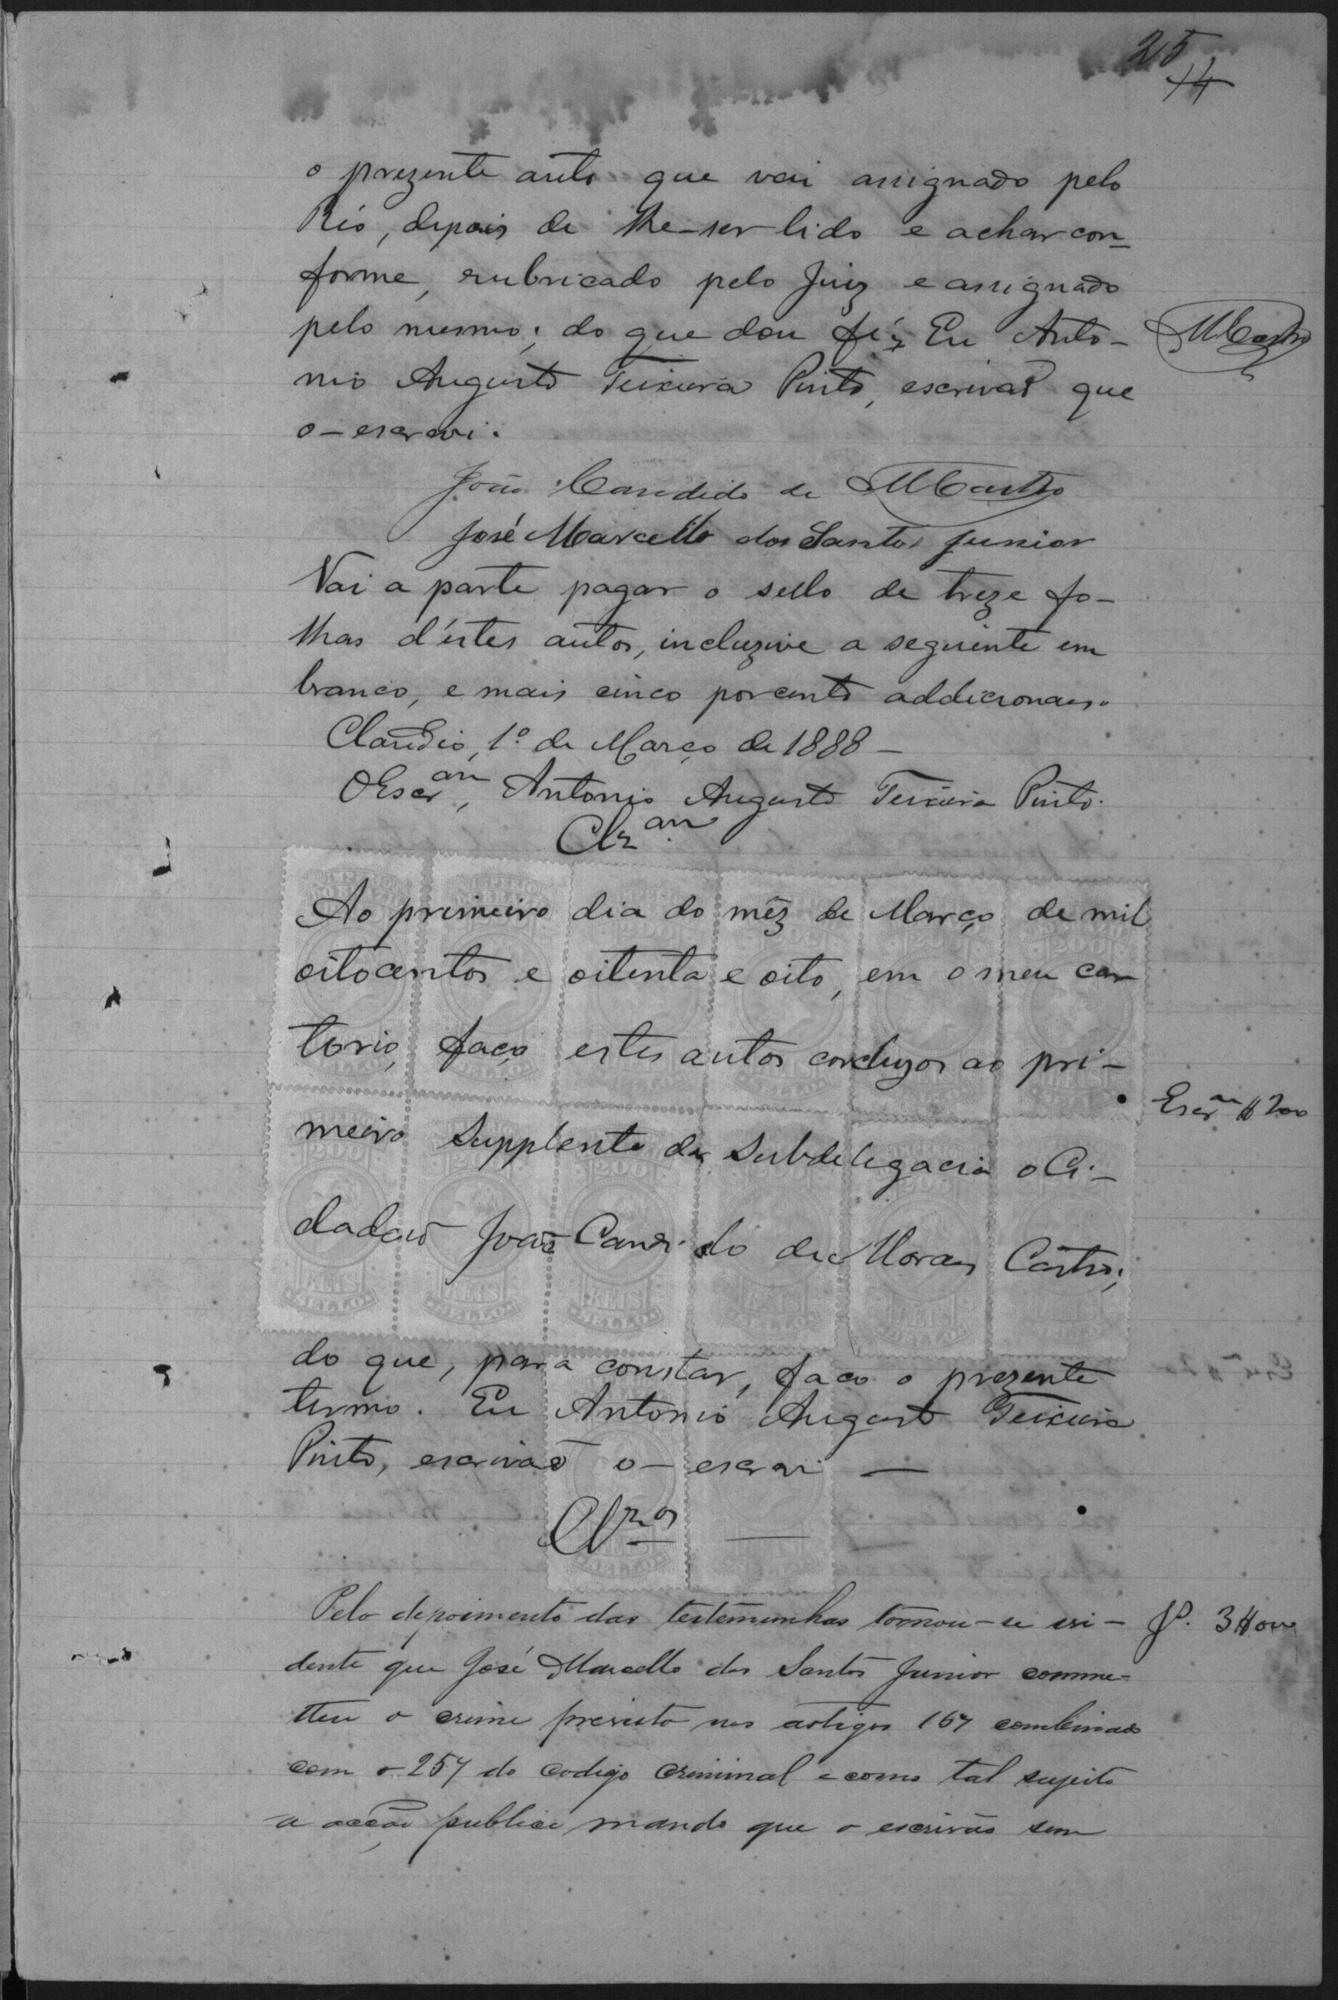 25
14
o prezente auto que vai assignado pelo
Réo, depois de lhe-ser lido e achar con-
forme, rubricado pelo Juiz e assignado
pelo mesmo; do que dou fé; Eu Anto-
MCastro
nio Augusto Teixeira Pinto, escrivaõ que
o-escrevi.
João Candido de MCastro
José Marcello dos Santos Junior
Vai a parte pagar o sello de treze fo-
lhas d'éstes autos, incluzive a seguinte em
branco, e mais cinco por cento addicionaes.
Claudio, 1º de Março de 1888 -
O Escr.am, Antonio Augusto Teixeira Pinto.
Clz.am
Ao primeiro dia do mêz de Março de mil
oitocentos e oitenta e oito, em o meu car
torio, faço estes autos concluzos ao pri-
Escr.am $200
meiro Supplente da Subdelegacia o Ci-
dadaõ Joaõ Candido de Moraes Castro;
do que, para constar, faço o prezente
termo. Eu Antonio Augusto Teixeira
Pinto, escrivaõ o-escrevi —
Clz.os —
Pelo depoimento das testemunhas tornou-se evi-
dente que José Marcello dos Santos Junior comme-
tteu o crime previsto nos artigos 167 combinado
com o 257 do codigo criminal e como tal sujeito
a acção publica mando que o escrivão sem